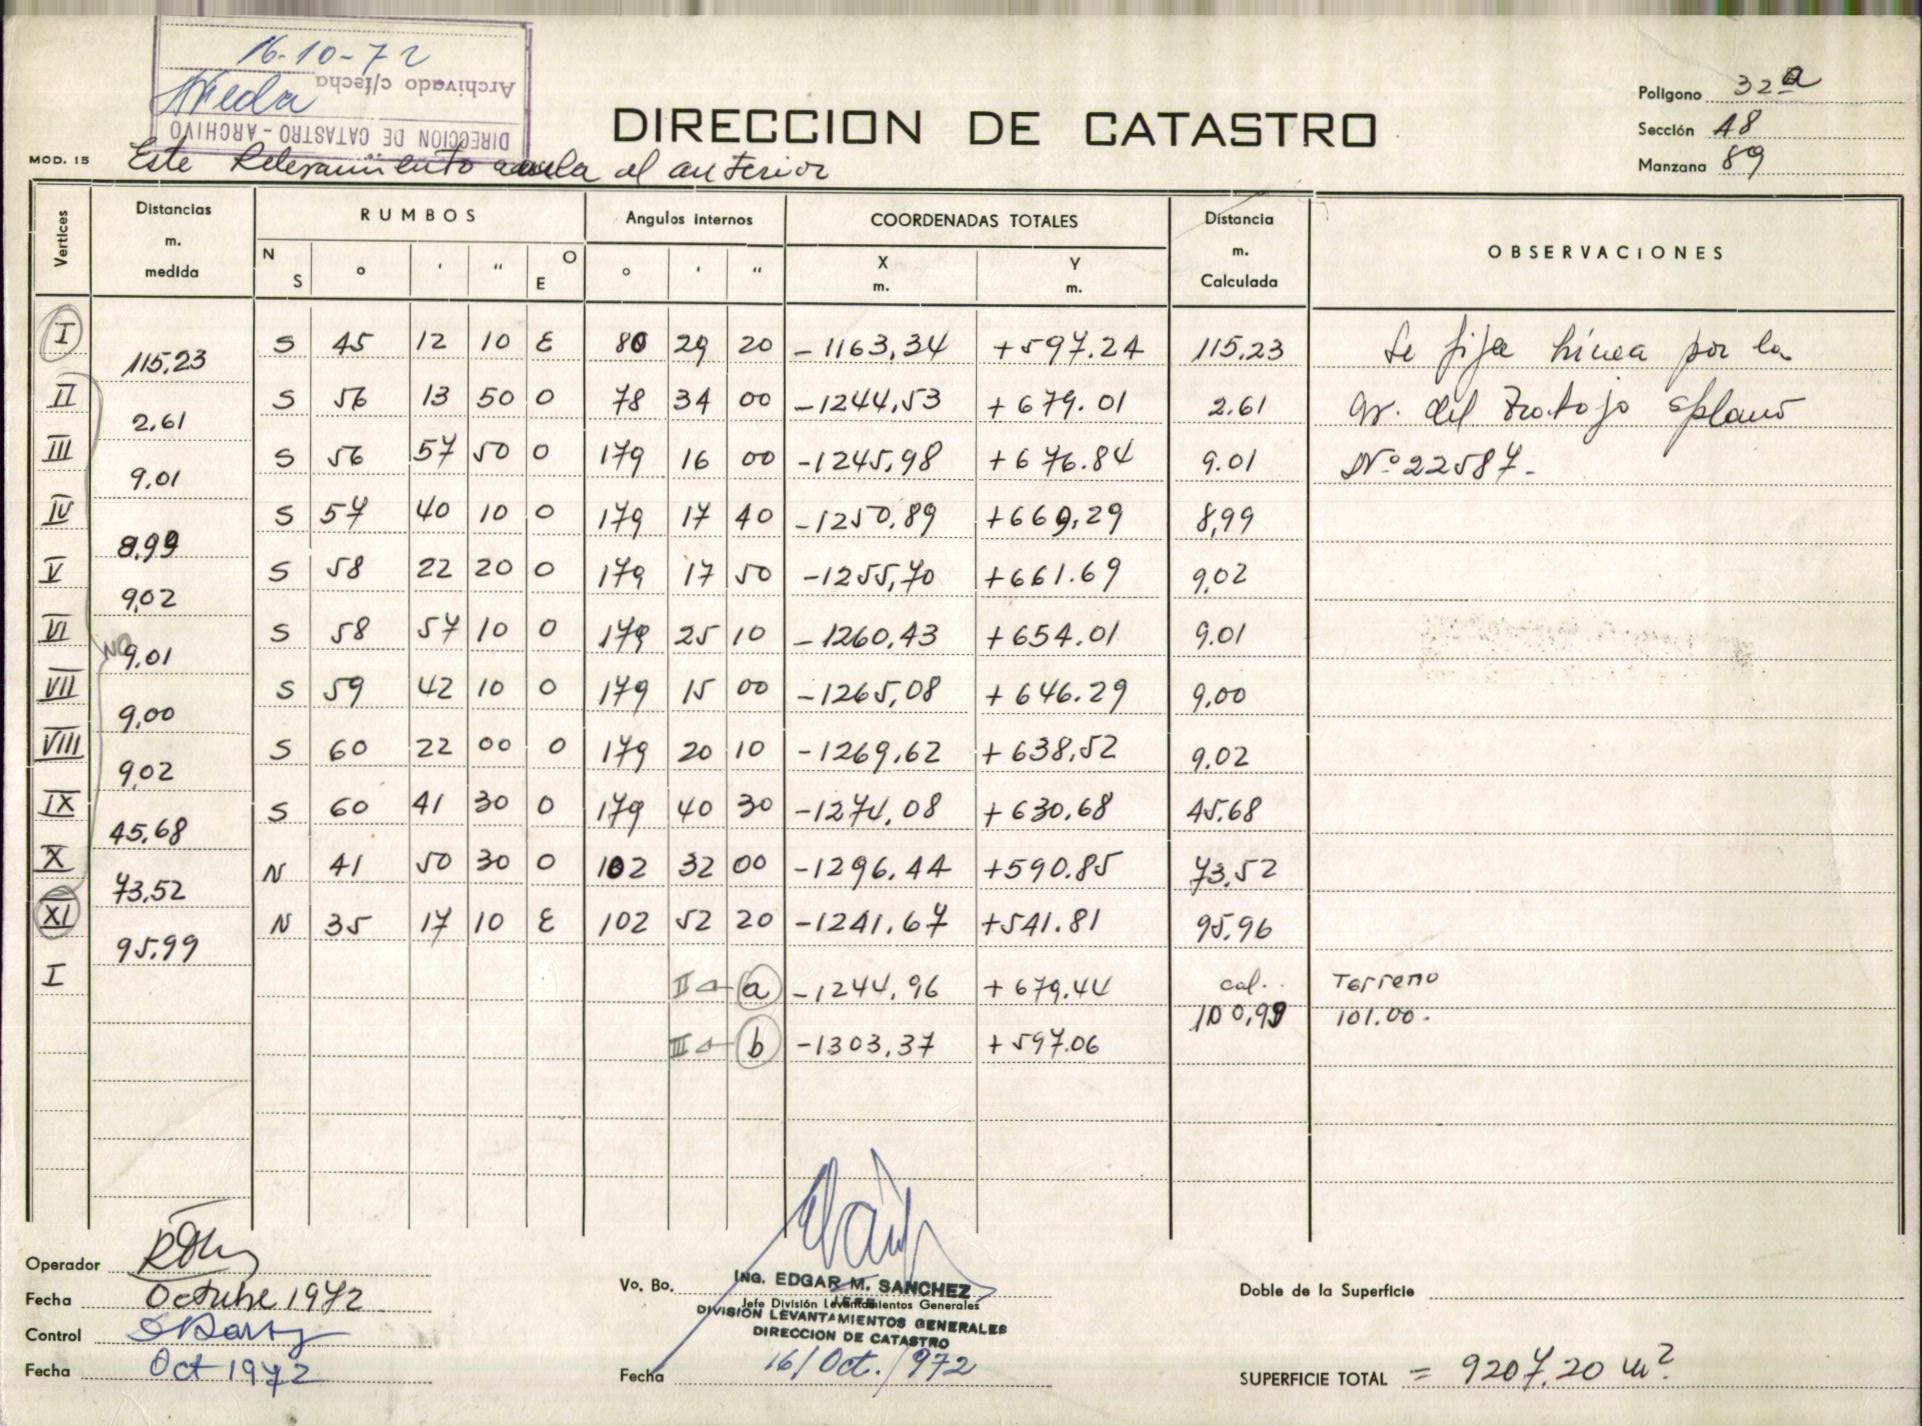 16-10-72
Archivado c/fecha
DIRECCIÓN DE CATASTRO - ARCHIVO
DIRECCION DE CATASTRO
Polígono 32 a
Sección 48
Manzana 89
MOD. 15
Este Relevamiento anula al anterior
Vertices Distancias m. medida RUMBOS Angulos internos COORDENADAS TOTALES Distancia m. Calculada OBSERVACIONES
N S ° ' " O E ° ' " X m. Y m.
I S 45 12 10 E 80 29 20 -1163,34 +597.24 115,23 Se fija línea por la
115,23
II S 56 13 50 O 78 34 00 -1244,53 +679.01 2.61 del
2.61
III S 56 57 50 O 179 16 00 -1245,98 +676.84 9.01 Nº 22587-
9,01
IV S 57 40 10 O 179 17 40 -1250,89 +669,29 8,99
8,99
V S 58 22 20 O 179 17 50 -1255,70 +661.69 9,02
9,02
VI S 58 57 10 O 179 25 10 -1260,43 +654.01 9.01
9,01
VII S 59 42 10 O 179 15 00 -1265,08 +646.29 9,00
9,00
VIII S 60 22 00 O 179 20 10 -1269,62 +638,52 9,02
9,02
IX S 60 41 30 O 179 40 30 -1274,08 +630,68 45,68
45,68
X N 41 50 30 O 102 32 00 -1296,44 +590.85 73,52
73,52
XI N 35 17 10 E 102 52 20 -1241,67 +541.81 95,96
95,99
I II a -1244,96 +679.44 cal. Terreno
100,99 101.00.
III b -1303,37 +597.06
Operador
Fecha Octubre 1972
Control
Fecha Oct 1972
Vo. Bo.
ING. EDGAR M. SANCHEZ
JEFE
Jefe División Levantamientos Generales
DIVISIÓN LEVANTAMIENTOS GENERALES
DIRECCION DE CATASTRO
Fecha 16/Oct./972
Doble de la Superficie
SUPERFICIE TOTAL = 9207,20 m²